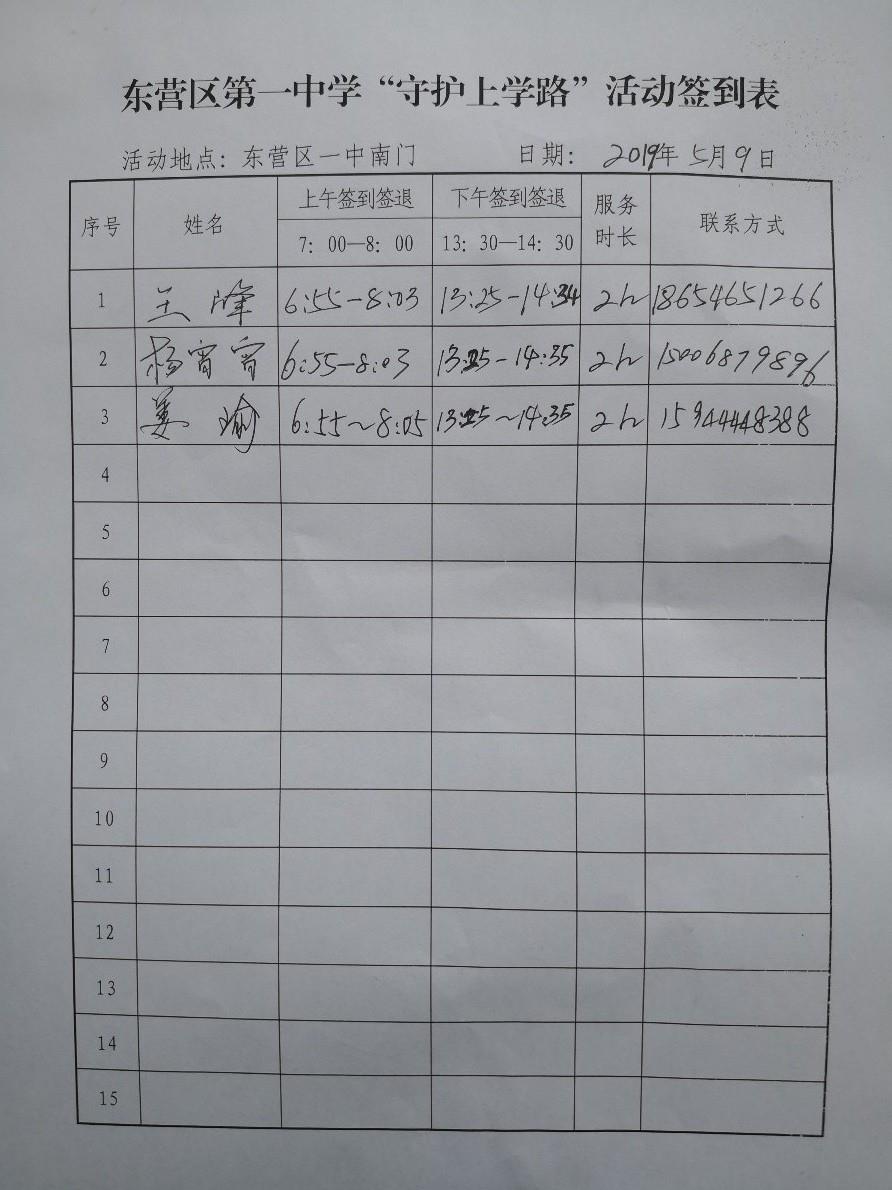 东营区第一中学“守护上学路”活动签到表
活动地点：东营区一中南门 日期：2019年5月9日
序号 姓名 上午签到签退 7：00—8：00 下午签到签退 13：30—14：30 服务时长 联系方式
1 王峰 6:55-8:03 13:25-14:34 2h 18654651266
2 杨宵宵 6:55-8:03 13:25-14:35 2h 15006879896
3 姜瑜 6:55~8:05 13:25~14:35 2h 15944448388
4
5
6
7
8
9
10
11
12
13
14
15